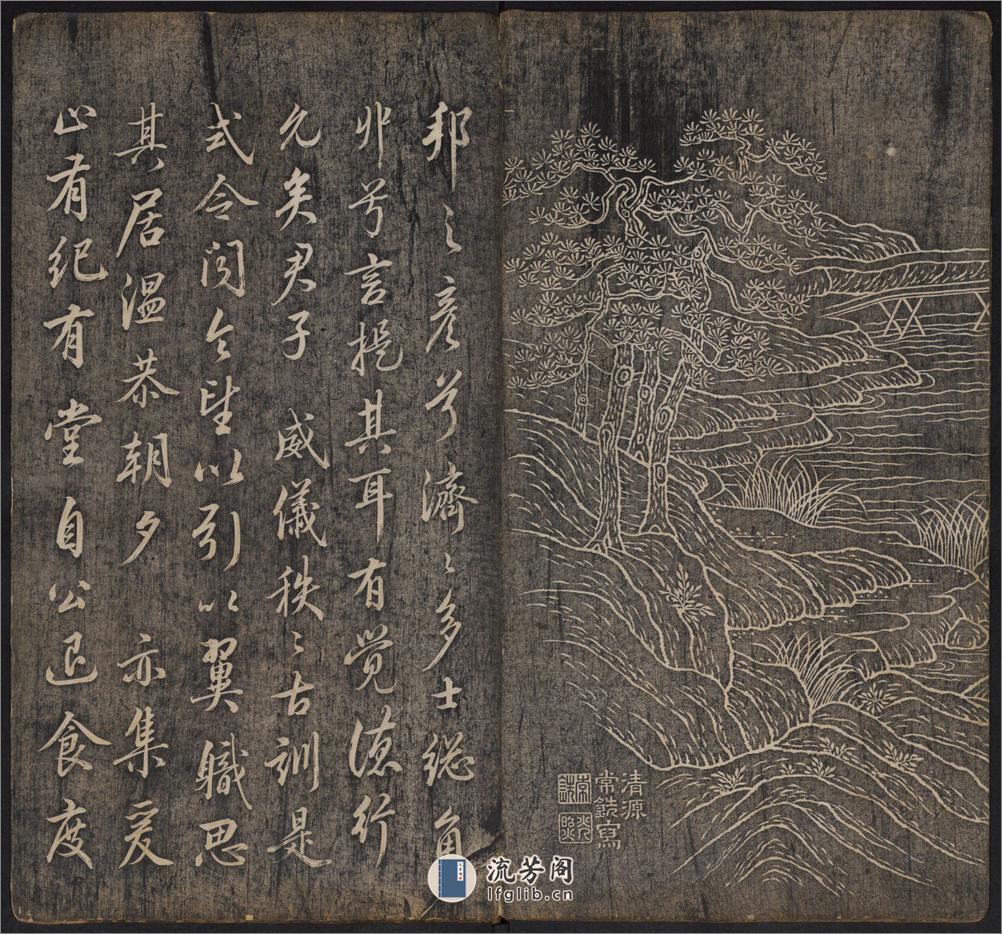 邦之彦兮濟々多士総角
丱兮言提其耳有觉德行
允矣君子威儀秩々古訓是
式令闻令望以引以翼職思
其居温恭朝夕亦集爰
止有纪有堂自公退食度
清源
常銑寫
流芳阁
lfglib.cn